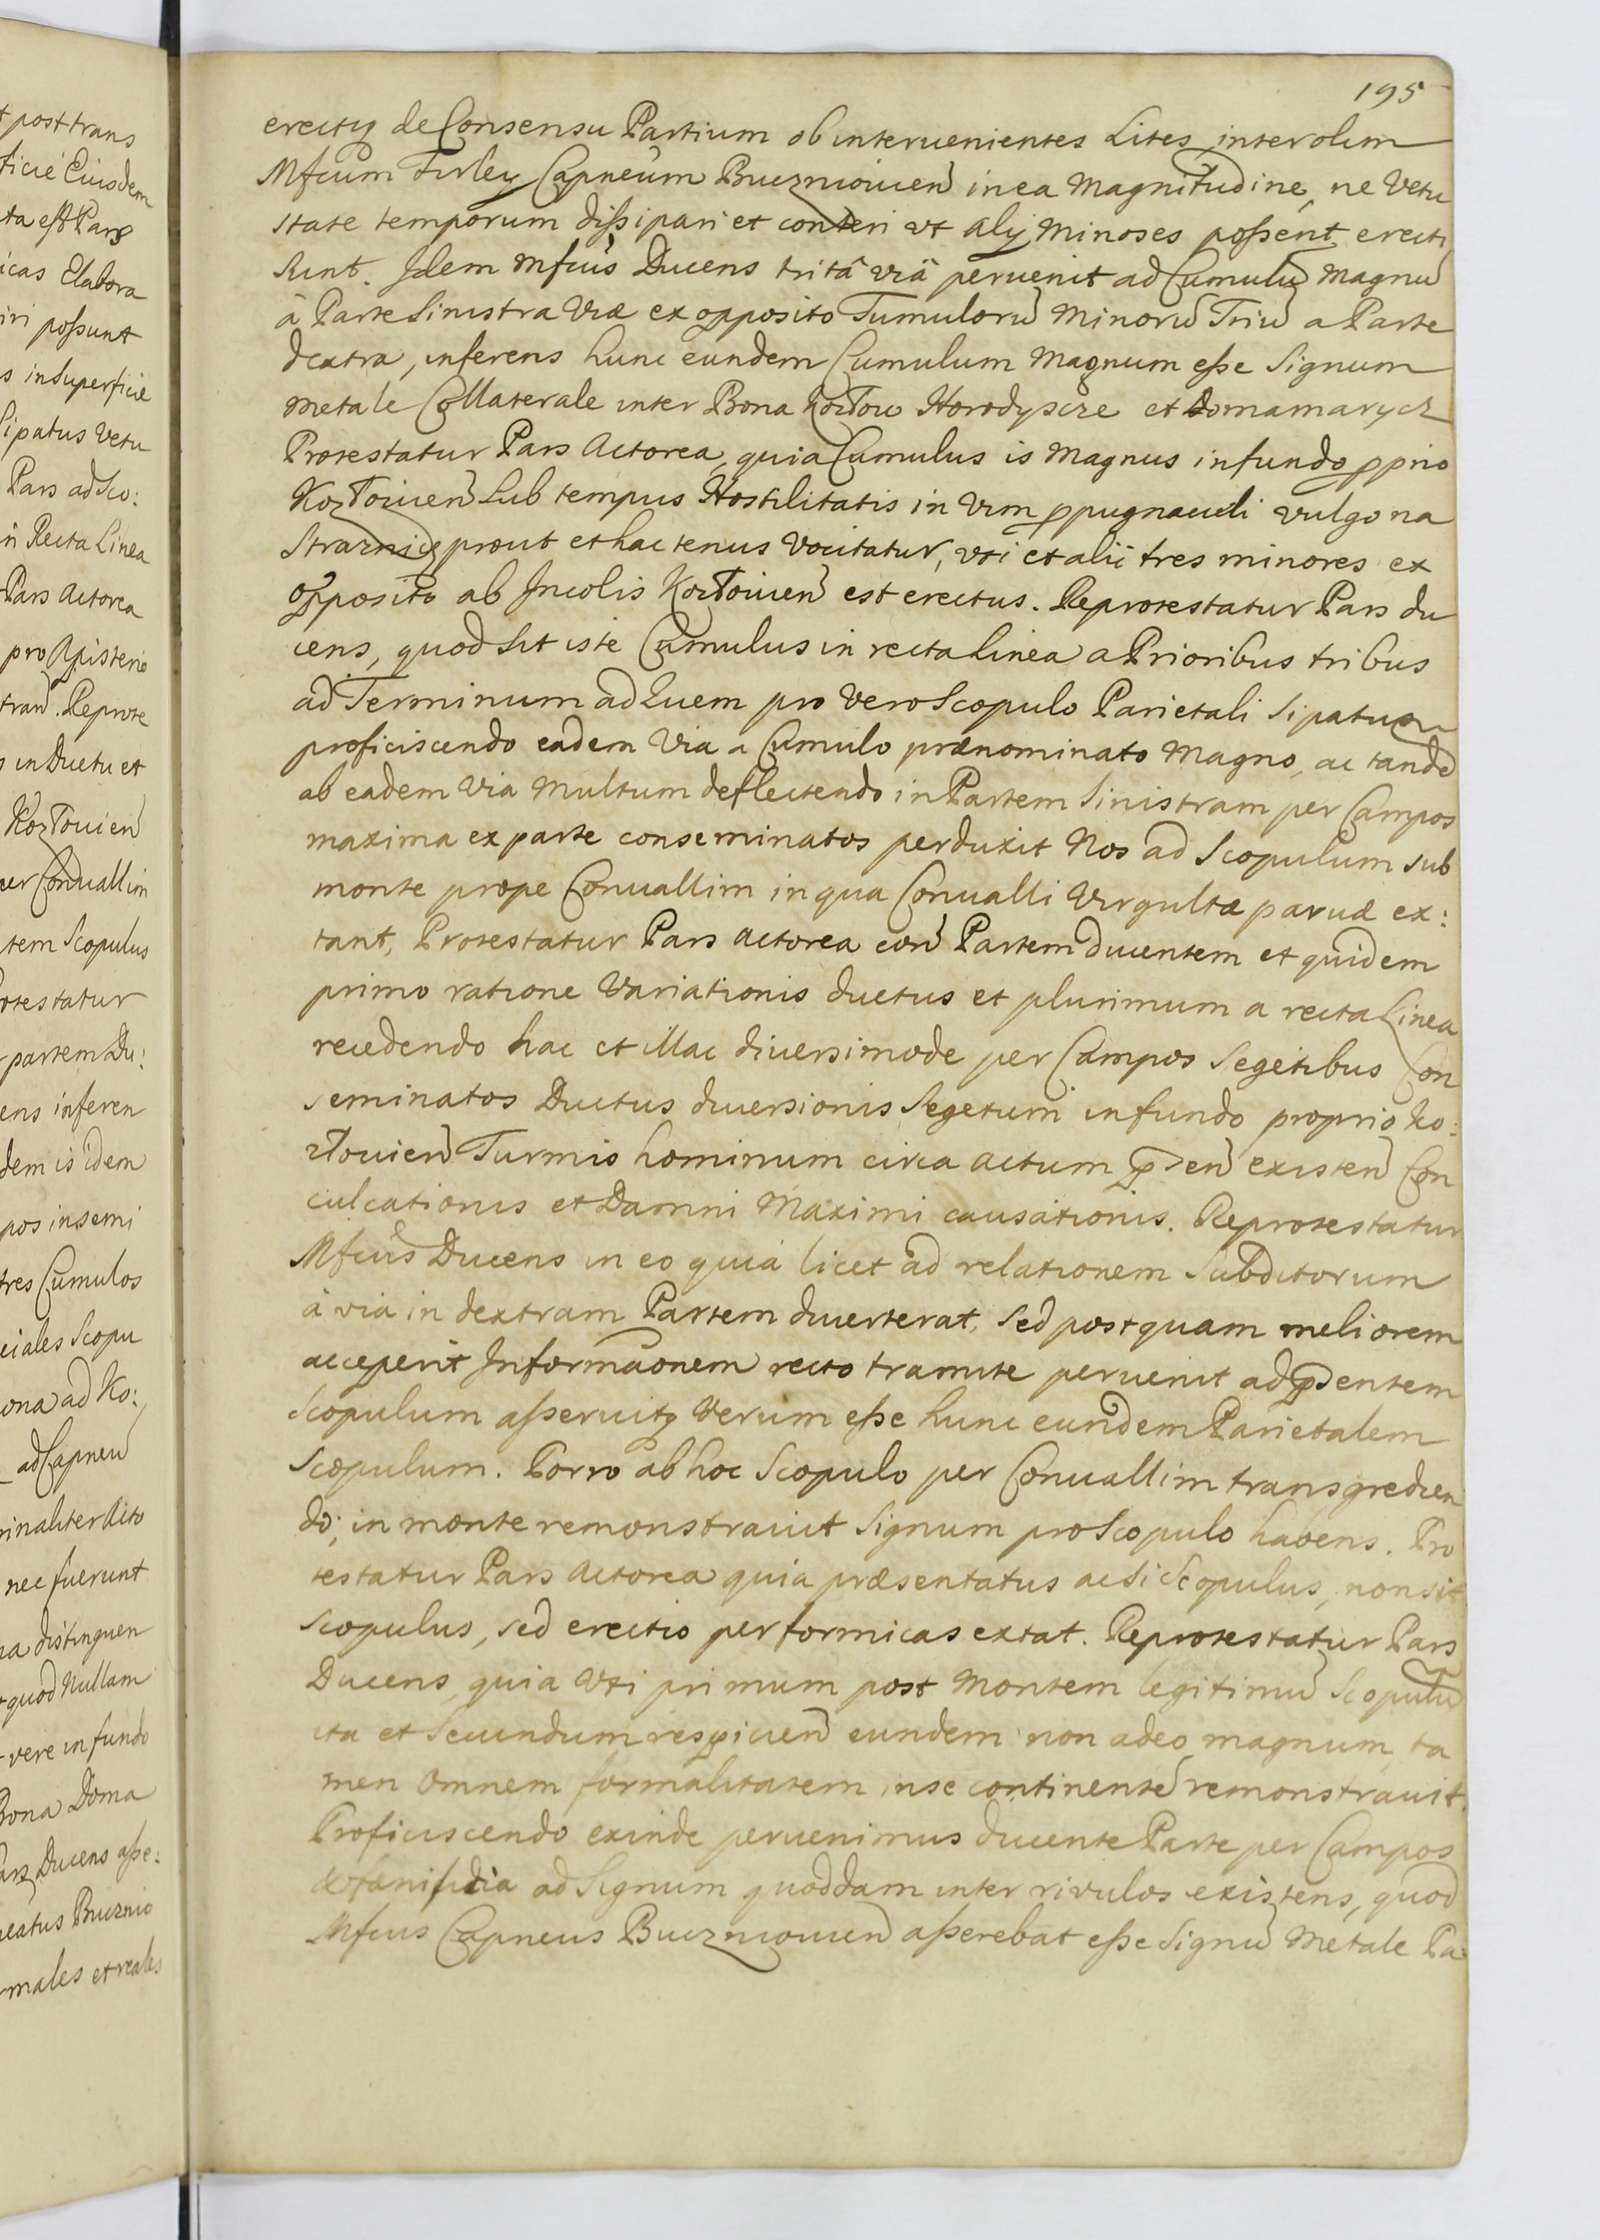 195
erectiq de Consensu Partium ob intervenientes Lites inter olim
Mfcum Turley Capneum Buczniouien in ea Magnitudine, ne Vetu
state temporum dissipari et conteri vt alij Minores possent, erecti
sunt. Idem Mfcus Ducens tritâ viâ peruenit ad Cumulū Magnū
â Parte Sinistra Viæ ex opposito Tumulorū Minorū Triū a Parte
dextra, inferens hunc eundem Cumulum Magnum esse Signum
Metale Collaterale inter Bona Kozłow Horodyscze et Domamarycz
Protestatur Pars Actorea, quia Cumulus is Magnus in fundo pprio
Kozłouien Sub tempus Hostilitatis in Vim ppugnaculi vulgo na
Straznicę prout et hactenus Vocitatur, vti et alii tres minores ex
opposito ab Incolis Kozłouien est erectus. Reprotestatur Pars du
cens, quod Sit iste Cumulus in recta Linea a Prioribus tribus
ad Terminum ad Quem pro Vero Scopulo Parietali Sipatus
proficiscendo eadem Via a Cumulo prænominato Magno, ac tandē
ab eadem Via Multum deflectendo in Partem Sinistram per Campos
maxima ex parte conseminatos perduxit Nos ad Scopulum sub
monte prope Conuallim in qua Conualli Virgultæ paruæ ex:
tant, Protestatur Pars Actorea con Partem ducentem et quidem
primo ratione Variationis ductus et plurimum a recta Linea
recedendo hac et illac diuersimode per Campos Segetibus Con
seminatos Ductus diuersionis Segetum in fundo proprio Ko:
złouien Turmis hominum circa actum pden existen Con
culcationis et Damni Maximi causationis. Reprotestatur
Mfcus Ducens in eo quia licet ad relationem Subditorum
â via in dextram Partem diuerterat, Sed postquam meliorem
acceperit Informãonem recto tramite peruenit ad pdentem
Scopulum asseruitq Verum esse hunc eundem Parietalem
Scopulum. Porro ab hoc Scopulo per Conuallim transgredien
do; in monte remonstrauit Signum pro Scopulo habens. Pro
testatur Pars Actorea quia præsentatus ac si Scopulus, non sit
Scopulus, sed erectio per formicas extat. Reprotestatur Pars
Ducens, quia Vti primum post Montem legitimū Scopulū
ita et Secundum respicien eundem non adeo magnum, ta
men Omnem formalitatem in se continentē remonstrauit.
Proficiscendo exinde peruenimus ducente Parte per Campos
ad Signum quoddam inter rivulos existens, quod
Mfcus Capneus Buczniouien asserebat esse Signū Metale Pa
t post trans
ficie Eiusdem
ta est Pars
icas Elabora
iri possunt
s in Superficie
Sipatus Vetu
Pars ad Sco:
in Recta Linea
Pars Actorea
tran. Reprote
s in Ductu et
Kozłouien
per Conuallim
tem Scopulus
rotestatur
partem Du:
ens inferen
dem is idem
pos insemi
tres Cumulos
ciales Scopu
ona ad Ko:
ad Capneū
rinaliter Acto
nec fuerunt
na distinguen
quod Nullam
vere in fundo
Bona Doma
ars Ducens asse:
neatus Bucznio
rmales et reales